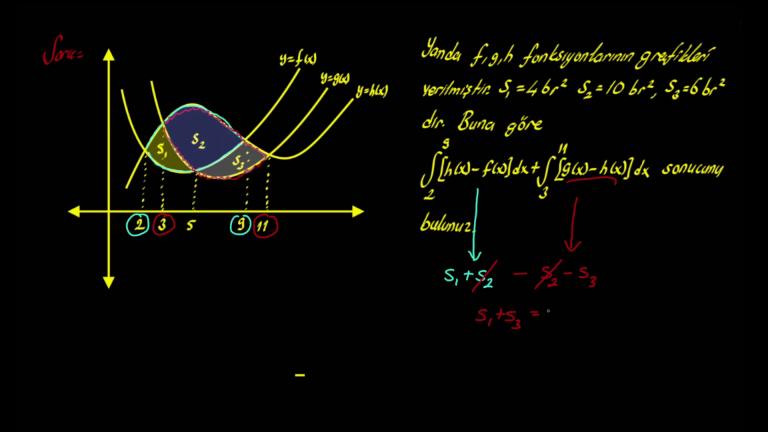 Soru=
y=f(x)
y=g(x)
y=h(x)
S₁
S₂
S₃
2 3 5 9 11
Yanda f,g,h fonksiyonlarının grafikleri
verilmiştir. S₁=4br² S₂=10br², S₃=6br²
dir. Buna göre
∫₂⁹[h(x)-f(x)]dx+∫₃¹¹[g(x)-h(x)]dx sonucunu
bulunuz.
S₁+S₂ - S₂-S₃
S₁+S₃ =